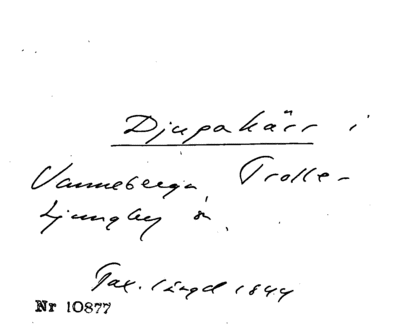 Djupakärr i
Vanneberga, Trolle-
Ljungby sn.
Tax. längd 1844
Nr 10877